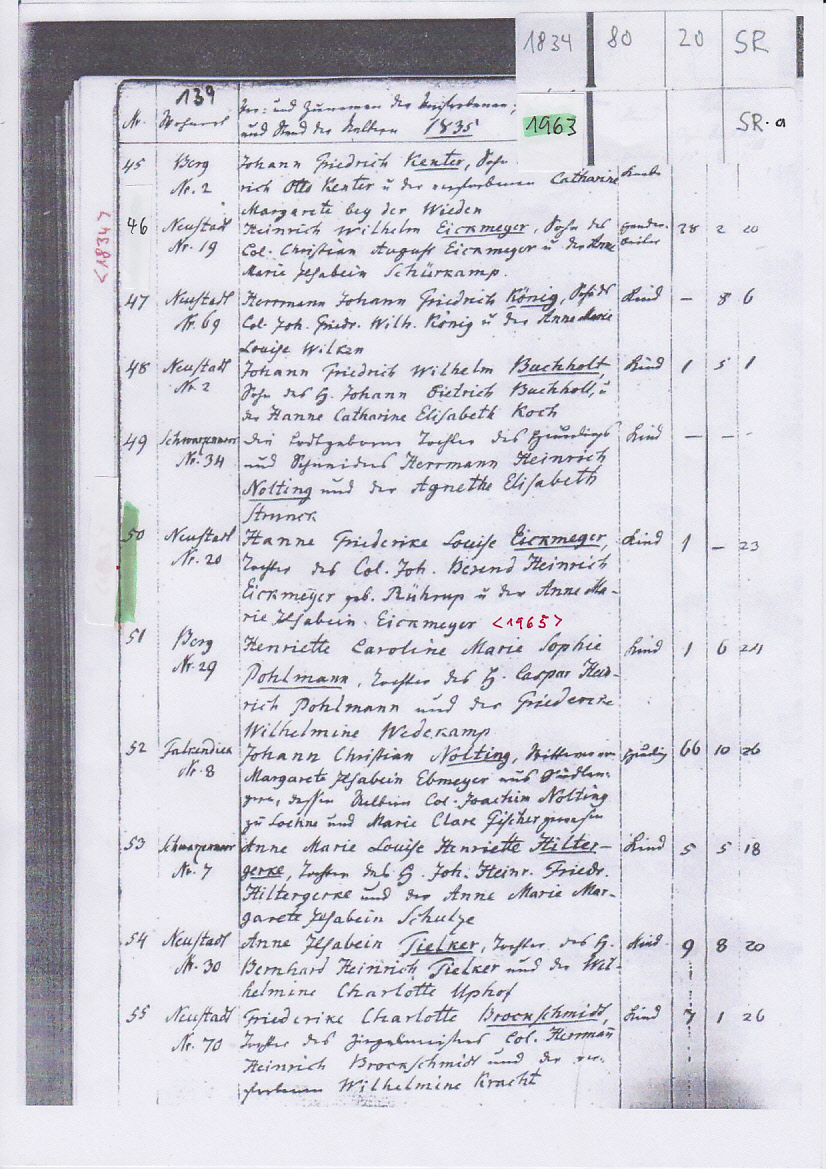 1834 80 20 SR
1963 SR. a
139
Nr. Wohnort Vor- und Zunamen der Verstorbenen,
und Stand der Aeltern 1835
<1834>
45 Berg Johann Friedrich Kenter, Sohn
Nr. 2 rich Otto Kenter u der verstorbenen Catharine Knabe
Margarete bey der Wieden
46 Neustadt Heinrich Wilhelm Eickmeyer, Sohn des 28 2 20
Nr. 19 Col. Christian August Eickmeyer u der Anne
Marie Ilsabein Schürkamp.
47 Neustadt Herrmann Johann Friedrich König, Sohn des Kind – 8 6
Nr. 69 Col. Joh. Friedr. Wilh. König u der Anne Marie
Louise Wilken
48 Neustadt Johann Friedrich Wilhelm Buchholt, Kind 1 5 1
Nr. 2 Sohn des H. Johann Dietrich Buchholt, u
der Hanne Catharine Elisabeth Koch
49 Schwarzenmoor Die todtgeborene Tochter des Heuerlings Kind – – –
Nr. 34 und Schneiders Herrmann Heinrich
Nolting und der Agnethe Elisabeth
Strunck
50 Neustadt Hanne Friederike Louise Eickmeyer, Kind 1 – 23
Nr. 20 Tochter des Col. Joh. Berend Heinrich
Eickmeyer geb. Rührup u der Anne Ma-
rie Ilsabein Eickmeyer <1965>
51 Berg Henriette Caroline Marie Sophie Kind 1 6 24
Nr. 29 Pohlmann, Tochter des H. Caspar Hein-
rich Pohlmann und der Friedericke
Wilhelmine Wedekamp
52 Falkendiek Johann Christian Nolting, Wittwer von 66 10 26
Nr. 8 Margarete Ilsabein Ebmeyer aus
dessen Aeltern Col. Joachim Nolting
zu Löhne und Marie Clare Fischer gewesen
53 Schwarzenmoor Anne Marie Louise Henriette Hilter- Kind 5 5 18
Nr. 7 gerke, Tochter des H. Joh. Heinr. Friedr.
Hiltergerke und der Anne Marie Mar-
garete Ilsabein Schulze
54 Neustadt Anne Ilsabein Tielker, Tochter des H. Kind 9 8 20
Nr. 30 Bernhard Heinrich Tielker und der Wil-
helmine Charlotte Uphof
55 Neustadt Friederike Charlotte Brockschmidt, Kind 7 1 26
Nr. 70 Tochter des Ziegelmeisters Col. Herrmañ
Heinrich Brockschmidt und der ver-
storbenen Wilhelmine Kracht